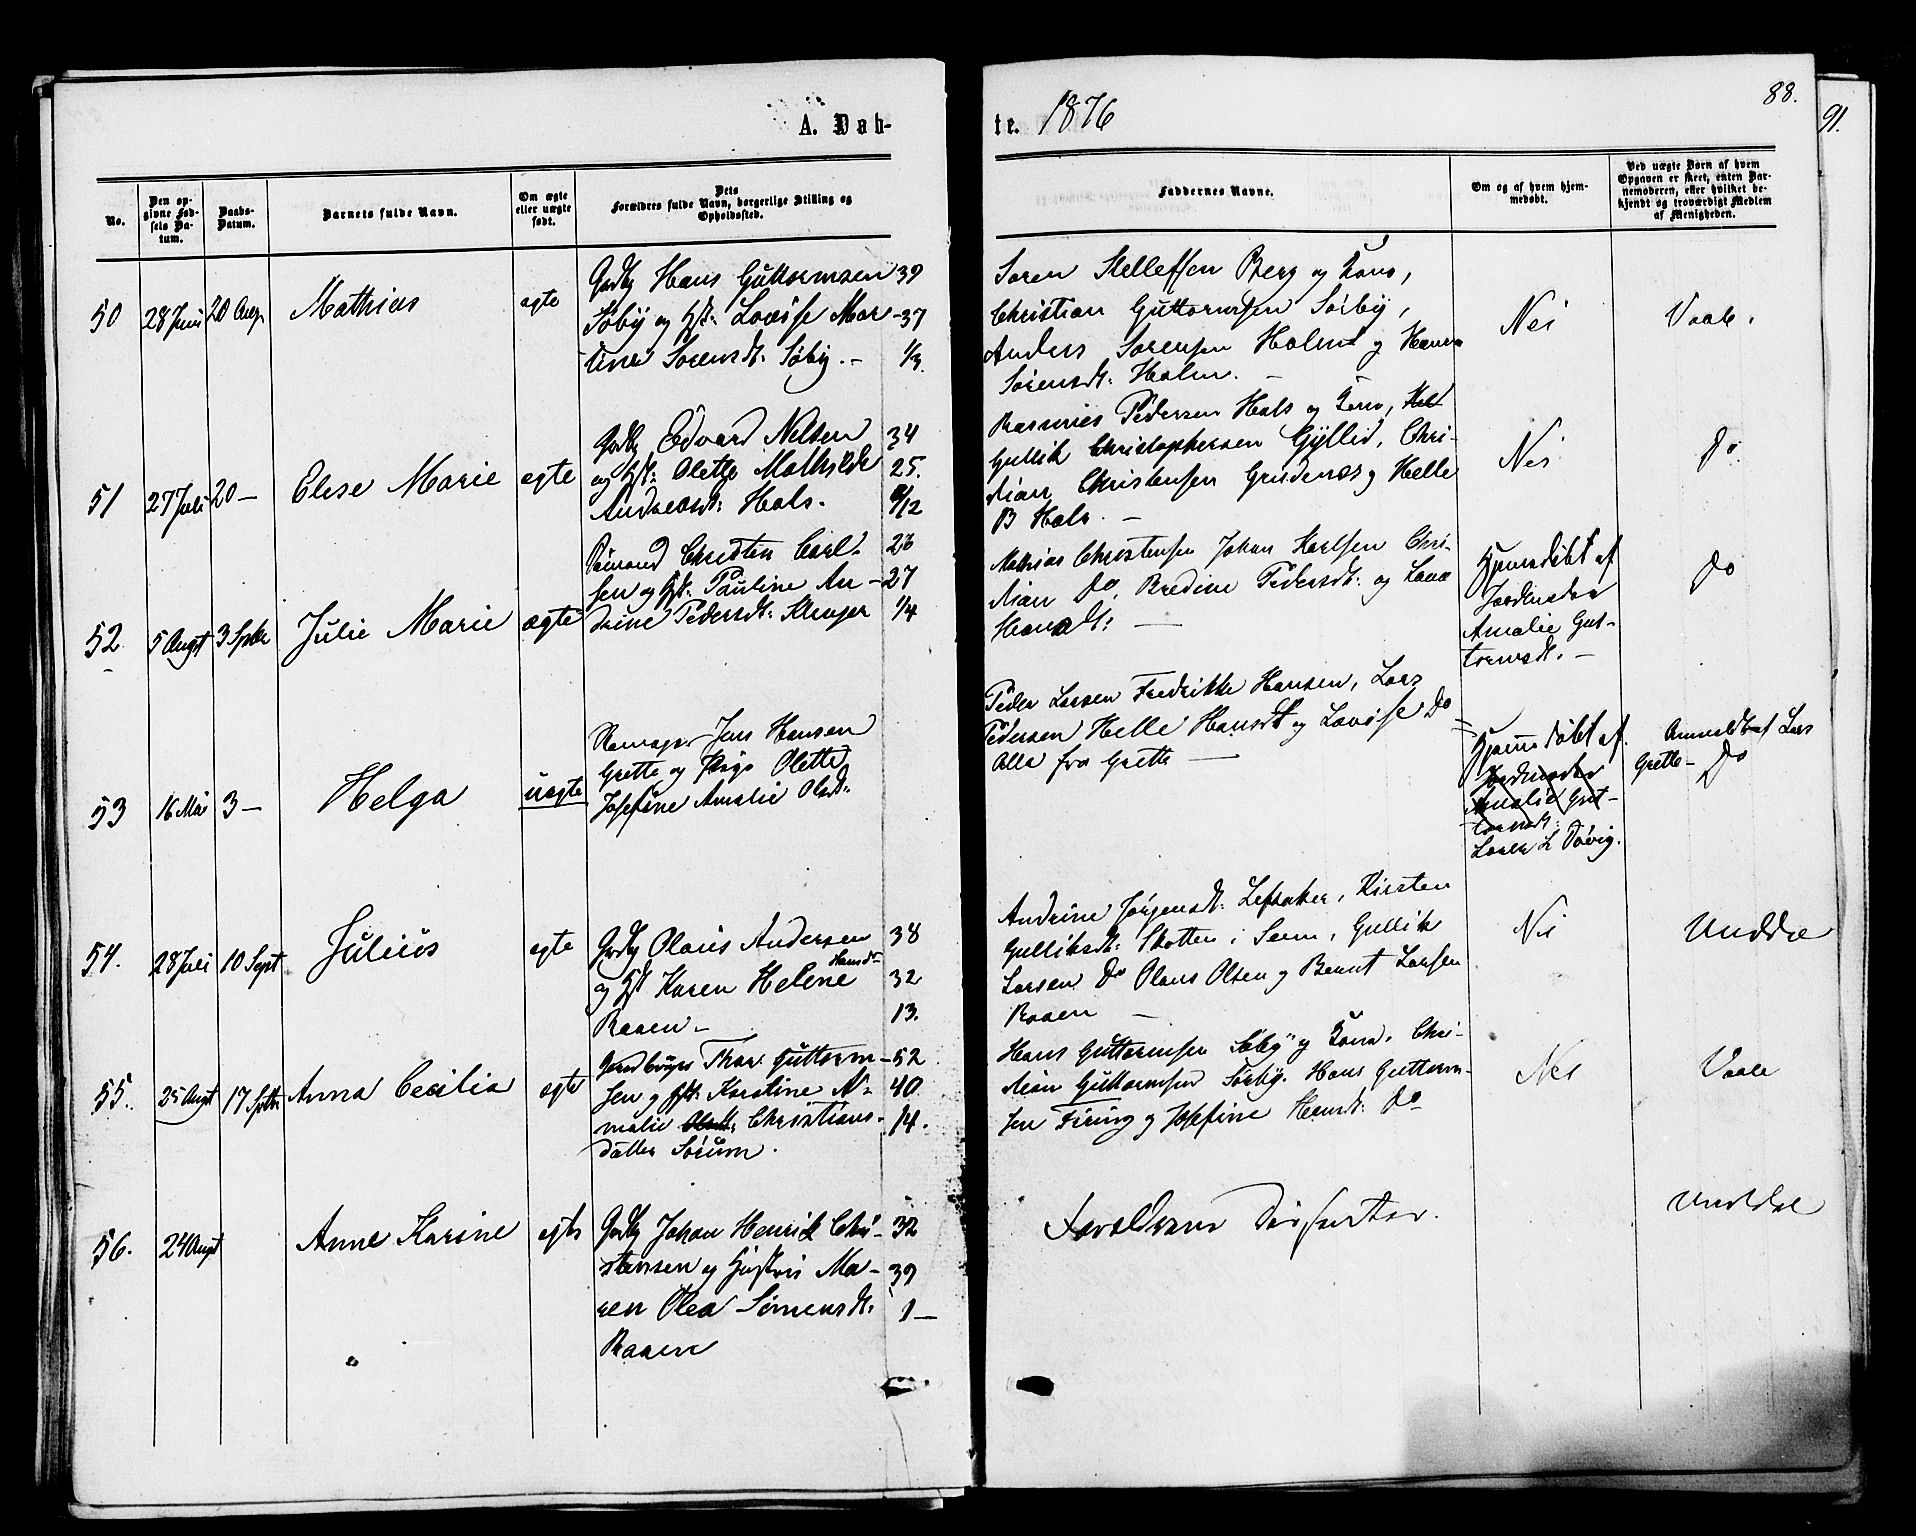 88.
91.
A. Døb-
te. 1876
No.
Den op-
givne Fød-
sels Da-
tum.
Daabs-
Datum.
Barnets fulde Navn.
Om ægte
eller uægte
født.
Dets
Forældres fulde Navn, borgerlige Stilling og
Opholdssted.
Faddernes Navne.
Om og af hvem hjem-
medøbt.
Ved uægte Børn af hvem
Opgaven er skeet, enten Bar-
nemoderen, eller hvilket be-
kjendt og troværdigt Medlem
af Menigheden.
50
28 Juni
20 Aug.
Mathias
ægte
Gdb Hans Guttormsen
Søby og Hst: Lovise Mar-
tine Sørensdt: Søby. -
39
37
1/3.
Søren Kellefsen Berg og Kone,
Christian Guttormsen Sørby,
Anders Sørensen Holm og
Sørensdt: Holm. -
Nei
Vaale.
51
27 Juli
20 -
Elise Marie
ægte
Gdb Edvard Nelsen
og Hst: Olette Mathilde
Andreasdt: Hals.
34
25.
9/12
Rasmus Pedersen Hals og Kone,
Gullik Christophersen Gyllid, Chri-
stian Christensen Grudenæs og Helle
B Hals. -
Nei
Do
52.
5 Augst
3 Sptbr
Julie Marie
ægte
Sømand Christen Carl-
sen og Hst: Pauline An-
drine Pedersdt: Klever
26
27
1/4
Mathias Christensen Johan Karlsen Chri-
stian Do, Bredine Pedersdt: og Lava
Hansdt: -
Hjemmedøbt af
Jordemoder
Amalie Gut-
tormsdt. -
Do
53
16 Mai
3 -
Helga
uægte
Jens Hansen
Grette og Pige Olette
Josefine Amalie Olsdt:
Peder Larsen Fredrikke Hansen, Lars
Pedersen Helle Hansdt og Lovise Do
Alle fra Grette -
Hjemmedøbt af
Jordemoder
Amalie Gut-
tormsdt:
L Døvig.
Anmeldt af Lars
Grette - Do
54.
28 Juli
10 Sept
Julius
ægte
Gdb Olaus Andersen
Hansdt
og Hst Karen Helene
Raaen -
38
32
13.
Andrine Jørgensdt: Lefsaker, Kirsten
Gulliksdt: Skotten i Sem, Gullik
Larsen Do Olaus Olsen og Bernt Larsen
Raaen -
Nei
Unddal
55.
25 Augst
17 Sptbr
Anna Cecilia
ægte
Gaardbruger Thor Guttorm-
sen og Hst: Karstine A-
malie Olsdt: Christians-
datter Sørum.
52
40
14.
Hans Guttormsen Søby og Kone. Chri-
stian Guttormsen Sørby. Hans Guttorm-
sen Firing og Josefine Hansdt: Do
Nei
Vaale
56.
24 Augst
Anne Karine
ægte
Gdb Johan Henrik Chri-
stensen og Hustru Ma-
ren Olea Simensdt:
Raaen
32
39
1 -
Forældrene Dissenter.
Unddal